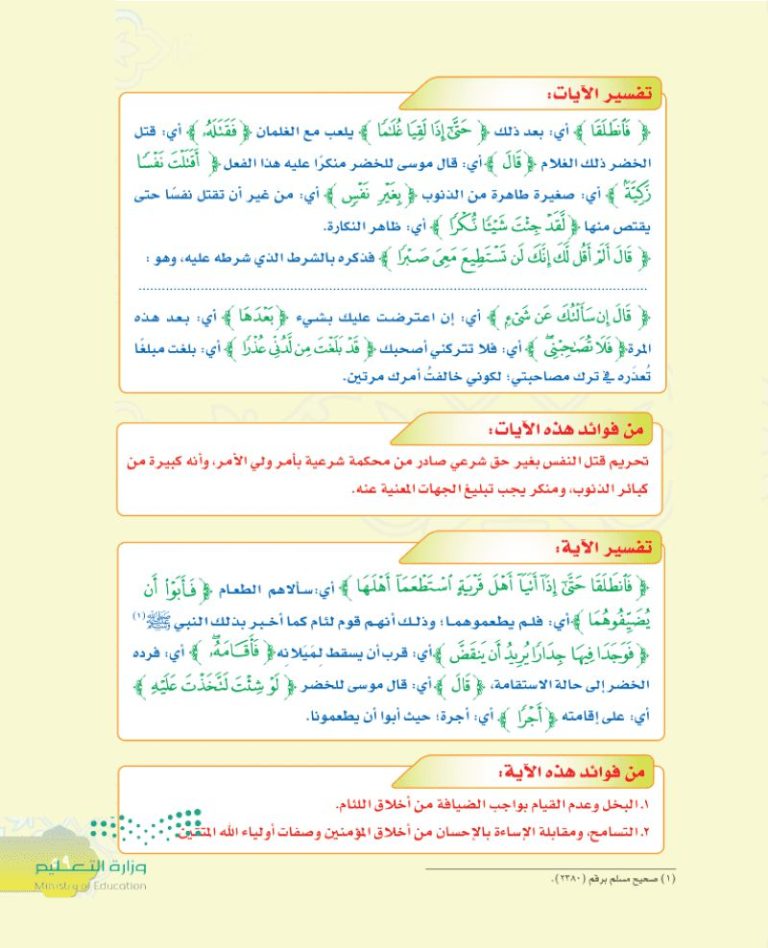 تفسير الآيات:
﴿ فَٱنطَلَقَا ﴾ أي: بعد ذلك ﴿ حَتَّىٰٓ إِذَا لَقِيَا غُلَٰمًا ﴾ يلعب مع الغلمان ﴿ فَقَتَلَهُۥ ﴾ أي: قتل
الخضر ذلك الغلام ﴿ قَالَ ﴾ أي: قال موسى للخضر منكرًا عليه هذا الفعل ﴿ أَقَتَلْتَ نَفْسًا
زَكِيَّةًۢ ﴾ أي: صغيرة طاهرة من الذنوب ﴿ بِغَيْرِ نَفْسٍ ﴾ أي: من غير أن تقتل نفسًا حتى
يقتص منها ﴿ لَّقَدْ جِئْتَ شَيْـًٔا نُّكْرًا ﴾ أي: ظاهر النكارة.
﴿ قَالَ أَلَمْ أَقُل لَّكَ إِنَّكَ لَن تَسْتَطِيعَ مَعِىَ صَبْرًا ﴾ فذكره بالشرط الذي شرطه عليه، وهو :
................................................................................
﴿ قَالَ إِن سَأَلْتُكَ عَن شَىْءٍۭ ﴾ أي: إن اعترضت عليك بشيء ﴿ بَعْدَهَا ﴾ أي: بعد هذه
المرة ﴿ فَلَا تُصَٰحِبْنِى ۖ ﴾ أي: فلا تتركني أصحبك ﴿ قَدْ بَلَغْتَ مِن لَّدُنِّى عُذْرًا ﴾ أي: بلغت مبلغًا
تُعذَره في ترك مصاحبتي؛ لكوني خالفتُ أمرك مرتين.
من فوائد هذه الآيات:
تحريم قتل النفس بغير حق شرعي صادر من محكمة شرعية بأمر ولي الأمر، وأنه كبيرة من
كبائر الذنوب، ومنكر يجب تبليغ الجهات المعنية عنه.
تفسير الآية:
﴿ فَٱنطَلَقَا حَتَّىٰٓ إِذَآ أَتَيَآ أَهْلَ قَرْيَةٍ ٱسْتَطْعَمَآ أَهْلَهَا ﴾ أي:سألاهم الطعام ﴿ فَأَبَوْا۟ أَن
يُضَيِّفُوهُمَا ﴾ أي: فلم يطعموهما؛ وذلك أنهم قوم لئام كما أخبر بذلك النبي ﷺ(١)
﴿ فَوَجَدَا فِيهَا جِدَارًا يُرِيدُ أَن يَنقَضَّ ﴾ أي: قرب أن يسقط لمَيَلانه ﴿ فَأَقَامَهُۥ ۖ ﴾ أي: فرده
الخضر إلى حالة الاستقامة، ﴿ قَالَ ﴾ أي: قال موسى للخضر ﴿ لَوْ شِئْتَ لَتَّخَذْتَ عَلَيْهِ ﴾
أي: على إقامته ﴿ أَجْرًا ﴾ أي: أجرة؛ حيث أبوا أن يطعمونا.
من فوائد هذه الآية:
١. البخل وعدم القيام بواجب الضيافة من أخلاق اللئام.
٢. التسامح، ومقابلة الإساءة بالإحسان من أخلاق المؤمنين وصفات أولياء الله المتقين.
(١) صحيح مسلم برقم (٢٣٨٠).
وزارة التعليم
Ministry of Education